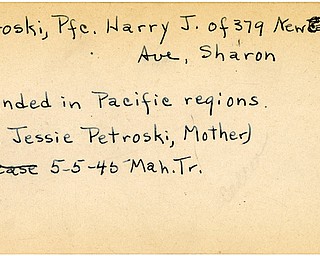 roski, Pfc. Harry J. of 379 New
Ave, Sharon
nded in Pacific regions.
Jessie Petroski, Mother)
ease 5-5-45 Mah. Tr.